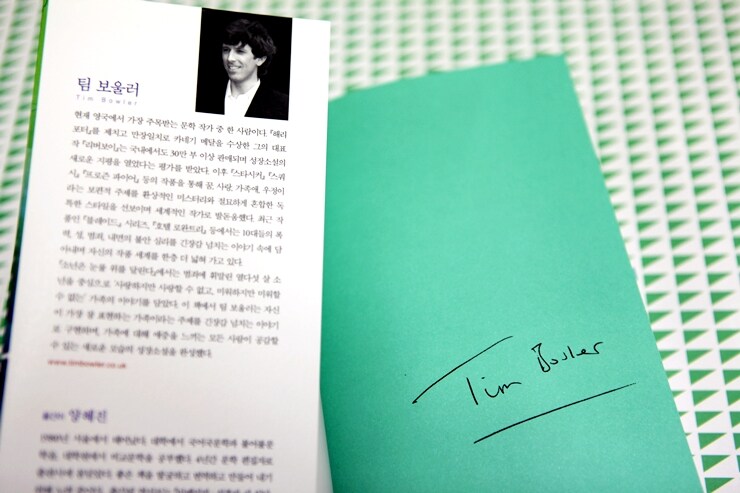 팀 보울러
Tim Bowler
현재 영국에서 가장 주목받는 문학 작가 중 한 사람이다. 『해리
포터』를 제치고 만장일치로 카네기 메달을 수상한 그의 대표
작 『리버보이』는 국내에서도 30만 부 이상 판매되며 성장소설의
새로운 지평을 열었다는 평가를 받았다. 이후 『스타시커』 『스쿼
시』 『프로즌 파이어』 등의 작품을 통해 꿈, 사랑, 가족애, 우정이
라는 보편적 주제를 환상적인 미스터리와 절묘하게 혼합한 독
특한 스타일을 선보이며 세계적인 작가로 발돋움했다. 최근 작
품인 『블레이드』 시리즈, 『호텔 로완트리』 등에서는 10대들의 폭
력, 성, 범죄, 내면의 불안 심리를 긴장감 넘치는 이야기 속에 담
아내며 자신의 작품 세계를 한층 더 넓혀 가고 있다.
『소년은 눈물 위를 달린다』에서는 범죄에 휘말린 열다섯 살 소
년을 중심으로 '사랑하지만 사랑할 수 없고, 미워하지만 미워할
수 없는' 가족의 이야기를 담았다. 이 책에서 팀 보울러는 자신
이 가장 잘 표현하는 가족이라는 주제를 긴장감 넘치는 이야기
로 구현하며, 가족에 대해 애증을 느끼는 모든 사람이 공감할
수 있는 새로운 모습의 성장소설을 완성했다.
www.timbowler.co.uk
옮긴이 양혜진
서울에서 태어났다. 대학에서 국어국문학과 불어불문
학을, 대학원에서 비교문학을 공부했다.
Tim Bowler